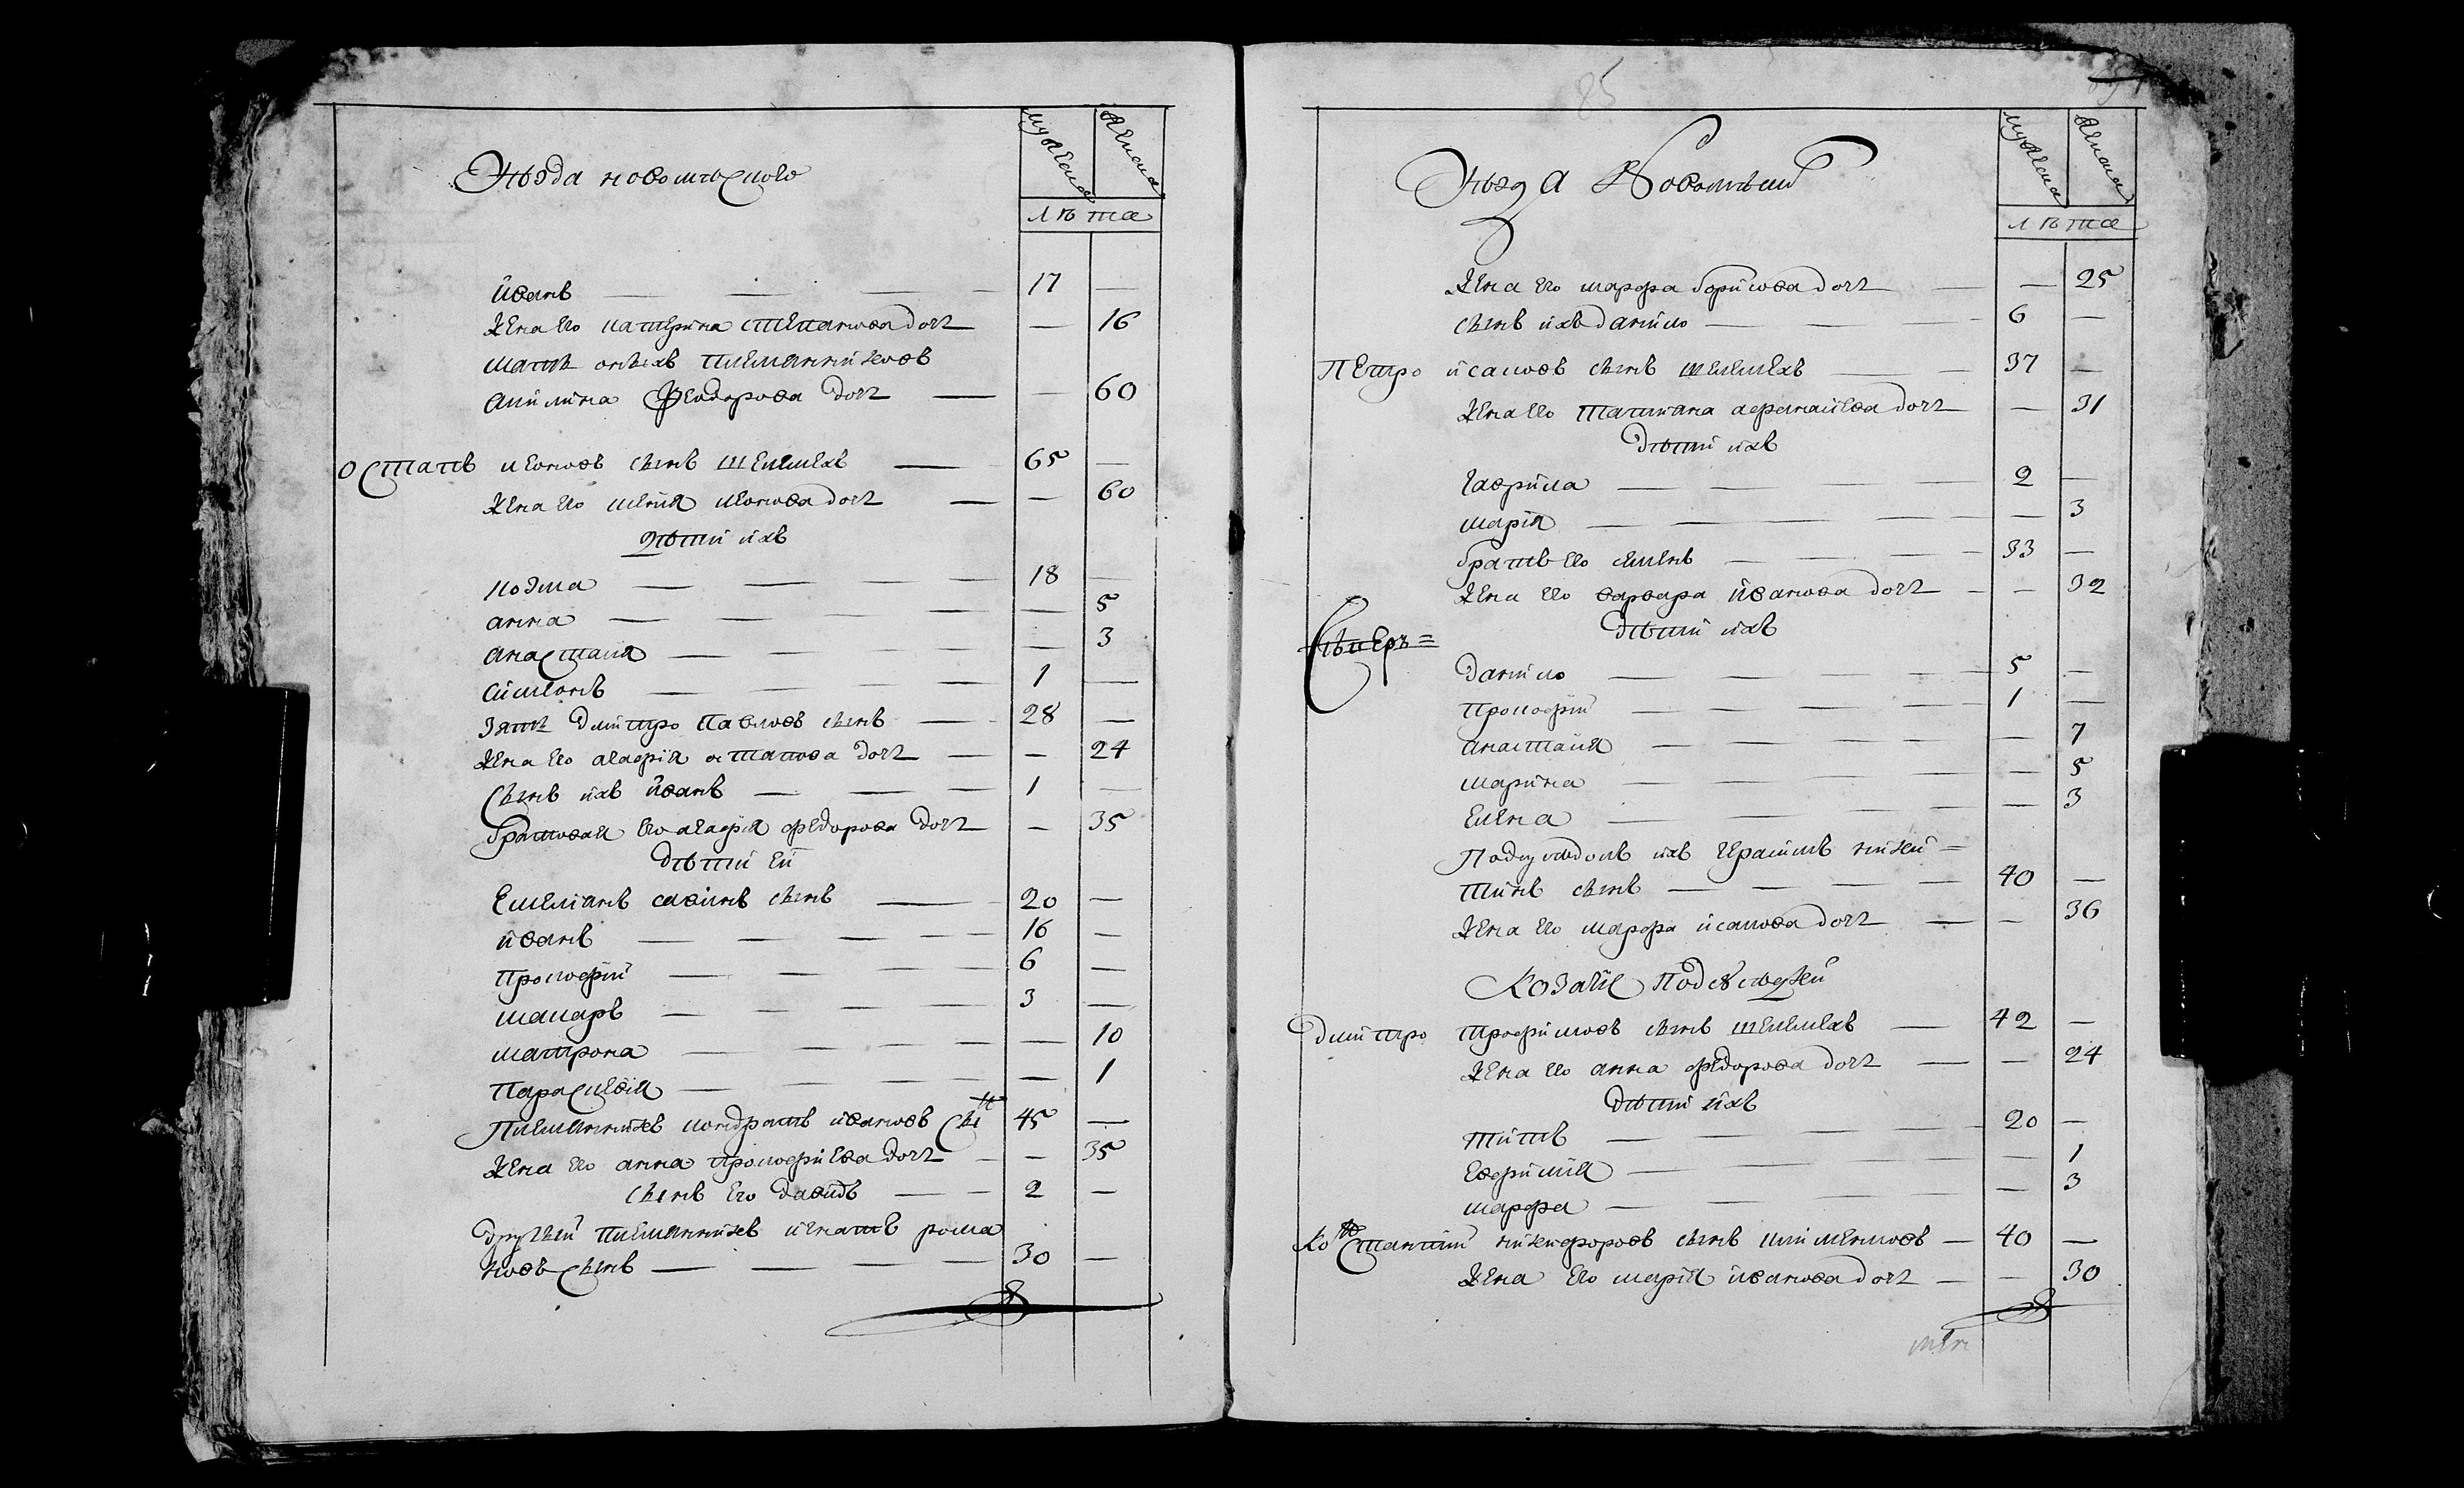 уѣзда новомлѣского
мужеска женска
лѣта
иванъ — 17 —
жена его катерина степанова дочь — 16
мать онѣхъ племянниковъ
акилина Феодорова дочь — 60
Остапъ леоновъ сынъ шелемехъ 65 —
жена его леоновa дочь — 60
дѣти ихъ
козма 18 —
анна — 5
анастасия — 3
симеонъ 1 —
зять дмитро павловъ сынъ 28 —
жена его агафия остапова дочь — 24
сынъ ихъ иванъ 1 —
братовая его агафия федорова дочь — 35
дѣти еи
емелианъ савинъ сынъ 20 —
иванъ 16 —
прокофий 6 —
макаръ 3 —
матрона — 10
параскевия — 1
племянникъ кондратъ ивановъ сынъ 45 —
жена его анна прокофиева дочь — 35
сынъ его давидъ 2 —
другый племянникъ игнатъ рома
новъ сынъ 30 —
85
уѣзда Новомлѣски
мужеска женска
лѣта
жена его марфа борисова дочь — 25
сынъ ихъ данило 6 —
Петро исаковъ сынъ шелемехъ 37 —
жена его татиана афанасиева дочь — 31
дѣти ихъ
гаврила 2 —
мария — 3
братъ его семенъ 33 —
жена его варвара иванова дочь — 32
дѣти ихъ
данило 5 —
прокофий 1 —
анастасия — 7
марина — 5
елена — 3
Подсусѣдокъ ихъ герасимъ ники=
тинъ сынъ 40 —
жена его марфа исакова дочь — 36
Козачие Подсусѣдки
дмитро трофимовъ сынъ шелемехъ 42 —
жена его анна федорова дочь — 24
дѣти ихъ
титъ 20 —
евфимия — 1
марфа — 3
Константий никифоровъ сынъ клименковъ 40 —
жена его мария иванова дочь — 30